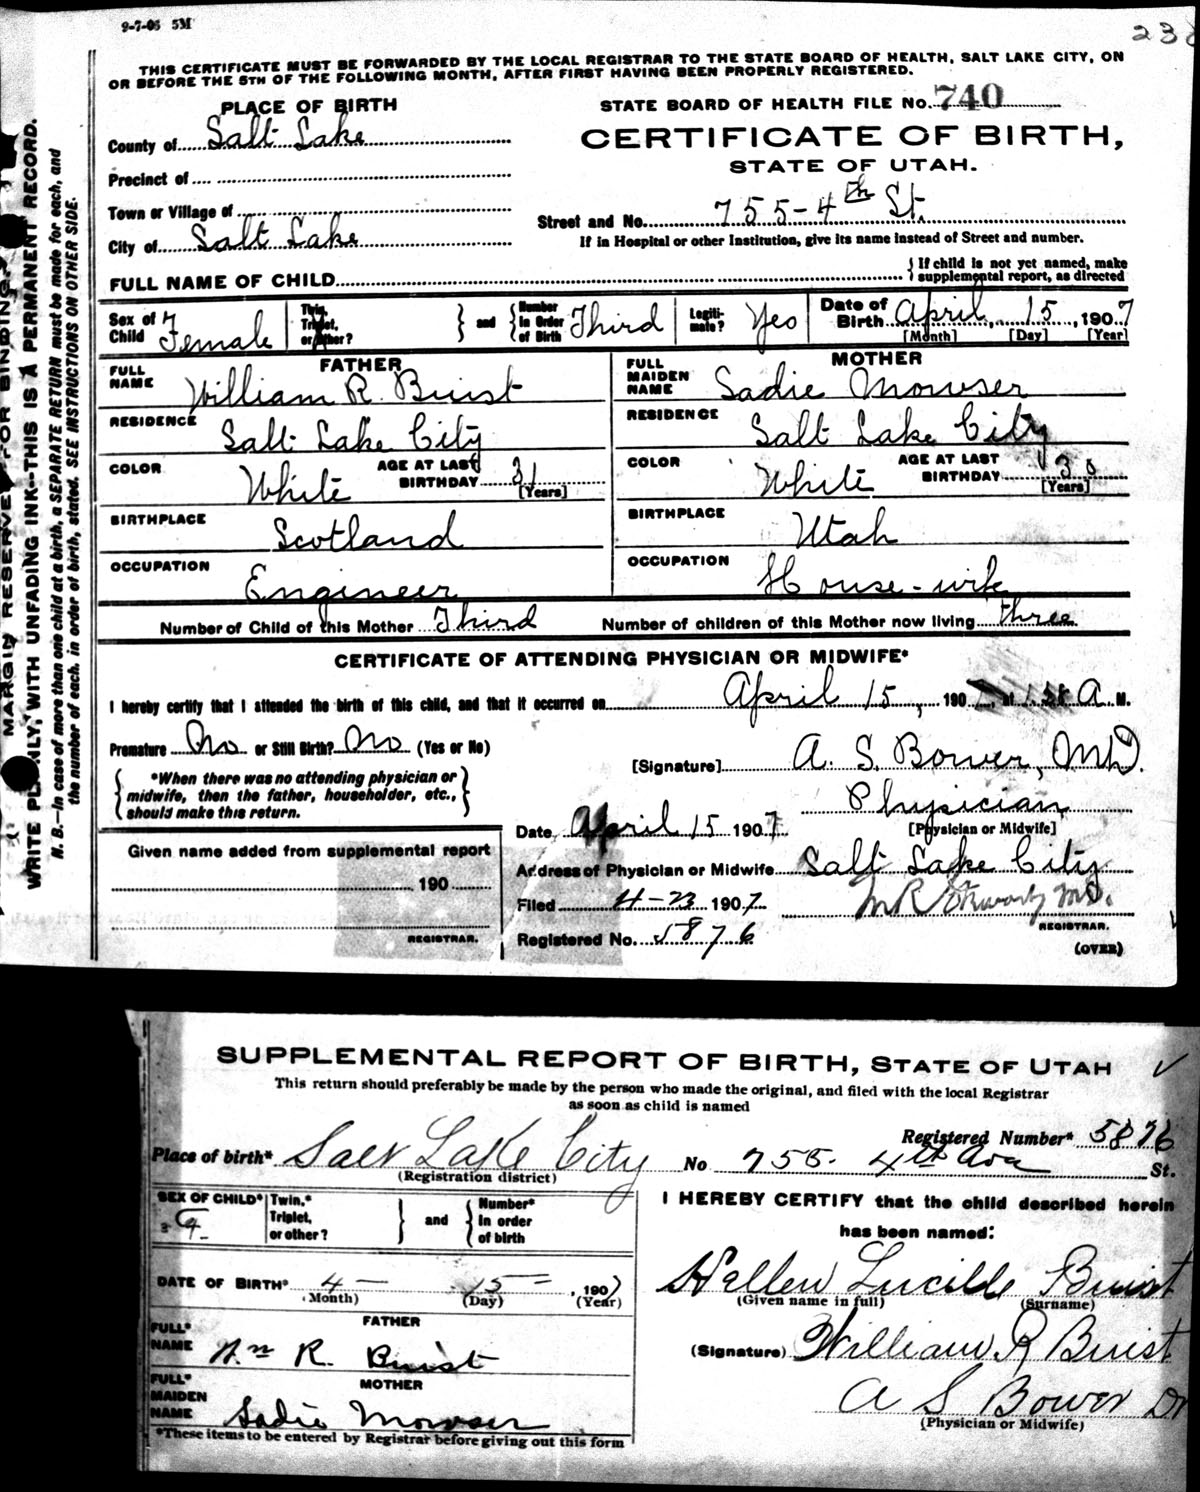 9-7-06 5M
THIS CERTIFICATE MUST BE FORWARDED BY THE LOCAL REGISTRAR TO THE STATE BOARD OF HEALTH, SALT LAKE CITY, ON
OR BEFORE THE 5TH OF THE FOLLOWING MONTH, AFTER FIRST HAVING BEEN PROPERLY REGISTERED.
PLACE OF BIRTH
County of Salt Lake
Precinct of
Town or Village of
City of Salt Lake
STATE BOARD OF HEALTH FILE NO. 740
CERTIFICATE OF BIRTH,
STATE OF UTAH.
Street and No. 755-4th St.
If in Hospital or other Institution, give its name instead of Street and number.
FULL NAME OF CHILD
If child is not yet named, make
supplemental report, as directed
Sex of Child Female
Twin, Triplet, or other?
and
Number in Order of Birth Third
Legiti-mate? Yes
Date of Birth April, 15, 1907
[Month] [Day] [Year]
FATHER
FULL NAME William R. Buist
RESIDENCE Salt Lake City
COLOR White AGE AT LAST BIRTHDAY 31 [Years]
BIRTHPLACE Scotland
OCCUPATION Engineer
MOTHER
FULL MAIDEN NAME Sadie Mowser
RESIDENCE Salt Lake City
COLOR White AGE AT LAST BIRTHDAY 30 [Years]
BIRTHPLACE Utah
OCCUPATION House-wife
Number of Child of this Mother Third Number of children of this Mother now living three
CERTIFICATE OF ATTENDING PHYSICIAN OR MIDWIFE*
I hereby certify that I attended the birth of this child, and that it occurred on April 15, 190 at A. M.
Premature No or Still Birth? No (Yes or No)
*When there was no attending physician or
midwife, then the father, householder, etc.,
should make this return.
[Signature] A. S. Bower, M.D.
Physician
[Physician or Midwife]
Date April 15 1907
Address of Physician or Midwife Salt Lake City
Given name added from supplemental report
190
REGISTRAR.
Filed 4-23 1907
M R M.D.
REGISTRAR.
Registered No. 5876
(OVER)
MARGIN RESERVED FOR BINDING.
WRITE PLAINLY, WITH UNFADING INK--THIS IS A PERMANENT RECORD.
N. B.—In case of more than one child at a birth, a SEPARATE RETURN must be made for each, and
the number of each, in order of birth, stated. SEE INSTRUCTIONS ON OTHER SIDE.
SUPPLEMENTAL REPORT OF BIRTH, STATE OF UTAH
This return should preferably be made by the person who made the original, and filed with the local Registrar
as soon as child is named
Registered Number* 5876
Place of birth* Salt Lake City No 755- 4th Ave St.
(Registration district)
SEX OF CHILD*
Twin,* Triplet, or other?
and
Number* In order of birth
DATE OF BIRTH* 4— 15—, 1907
(Month) (Day) (Year)
FATHER
FULL* NAME Wm R. Buist
MOTHER
FULL* MAIDEN NAME Sadie Mowser
*These items to be entered by Registrar before giving out this form
I HEREBY CERTIFY that the child described herein
has been named:
Hellen Lucille Buist
(Given name in full) (Surname)
(Signature) William R Buist
A S Bower Dr
(Physician or Midwife)